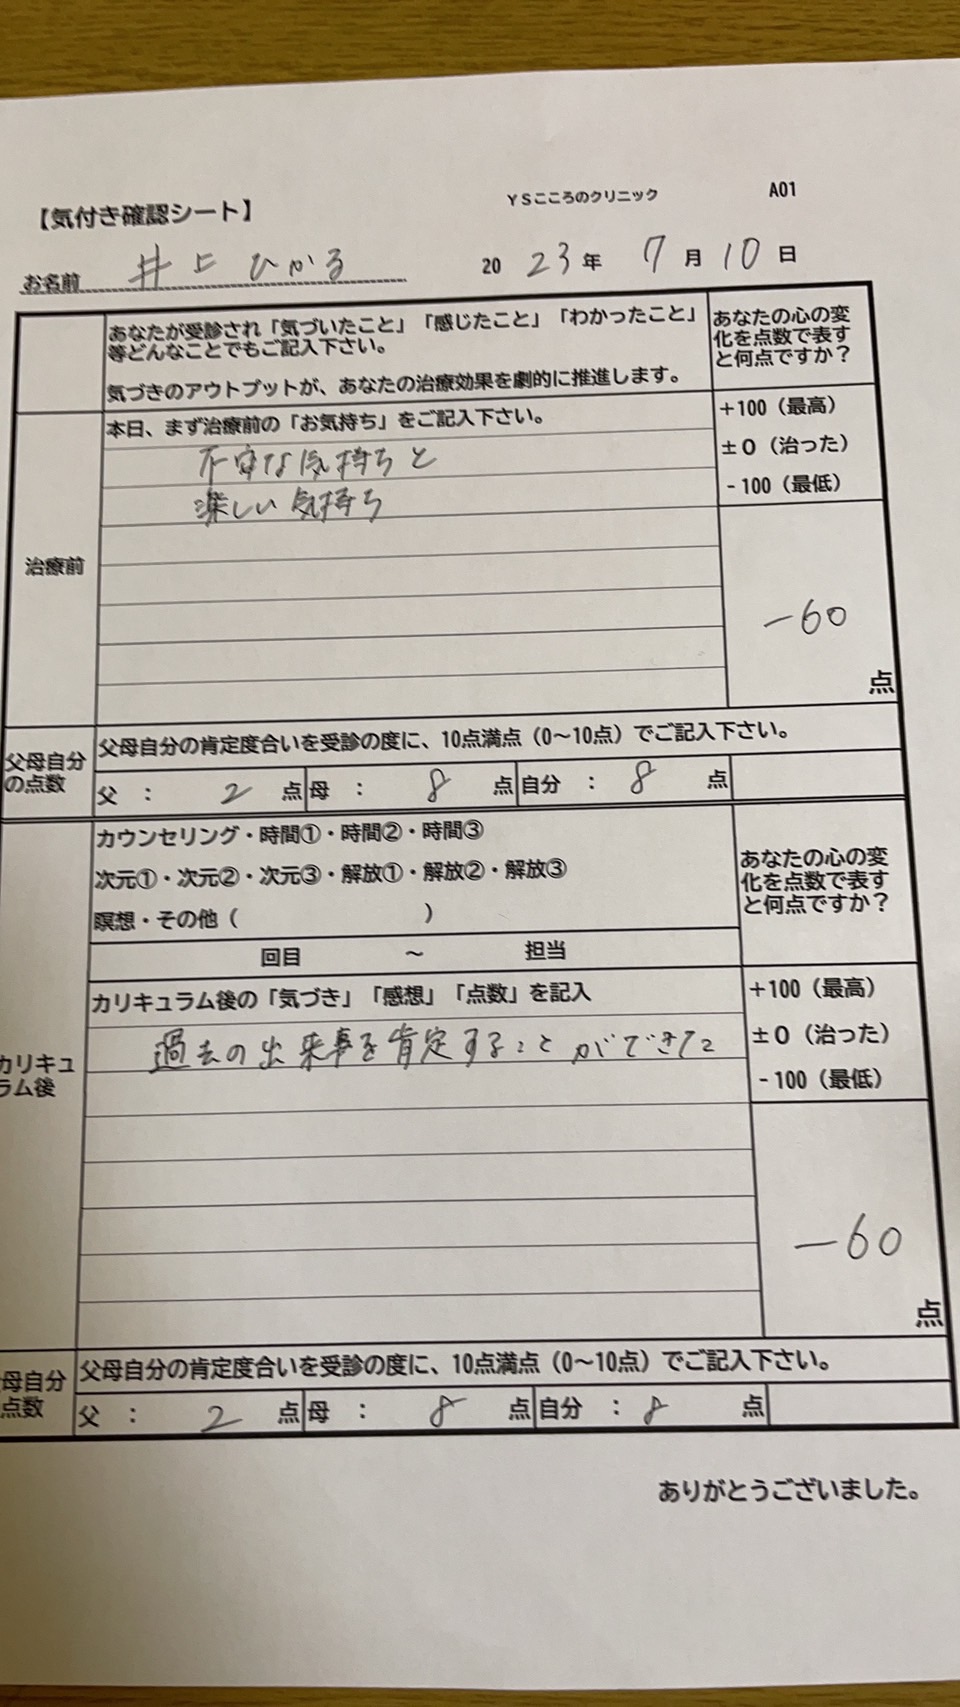 【気付き確認シート】
YSこころのクリニック
A01
お名前 井上ひかる
2023年 7月10日
あなたが受診され「気づいたこと」「感じたこと」「わかったこと」
等どんなことでもご記入下さい。
気づきのアウトプットが、あなたの治療効果を劇的に推進します。
あなたの心の変
化を点数で表す
と何点ですか？
治療前
本日、まず治療前の「お気持ち」をご記入下さい。
不安な気持ちと
楽しい気持ち
+100（最高）
±0（治った）
-100（最低）
-60
点
父母自分
の点数
父母自分の肯定度合いを受診の度に、10点満点（0～10点）でご記入下さい。
父 ： 2 点 母 ： 8 点 自分 ： 8 点
カリキュ
ラム後
カウンセリング・時間①・時間②・時間③
次元①・次元②・次元③・解放①・解放②・解放③
瞑想・その他（　　　）
回目 ～ 担当
あなたの心の変
化を点数で表す
と何点ですか？
カリキュラム後の「気づき」「感想」「点数」を記入
過去の出来事を肯定することができた
+100（最高）
±0（治った）
-100（最低）
-60
点
母自分
点数
父母自分の肯定度合いを受診の度に、10点満点（0～10点）でご記入下さい。
父 ： 2 点 母 ： 8 点 自分 ： 8 点
ありがとうございました。